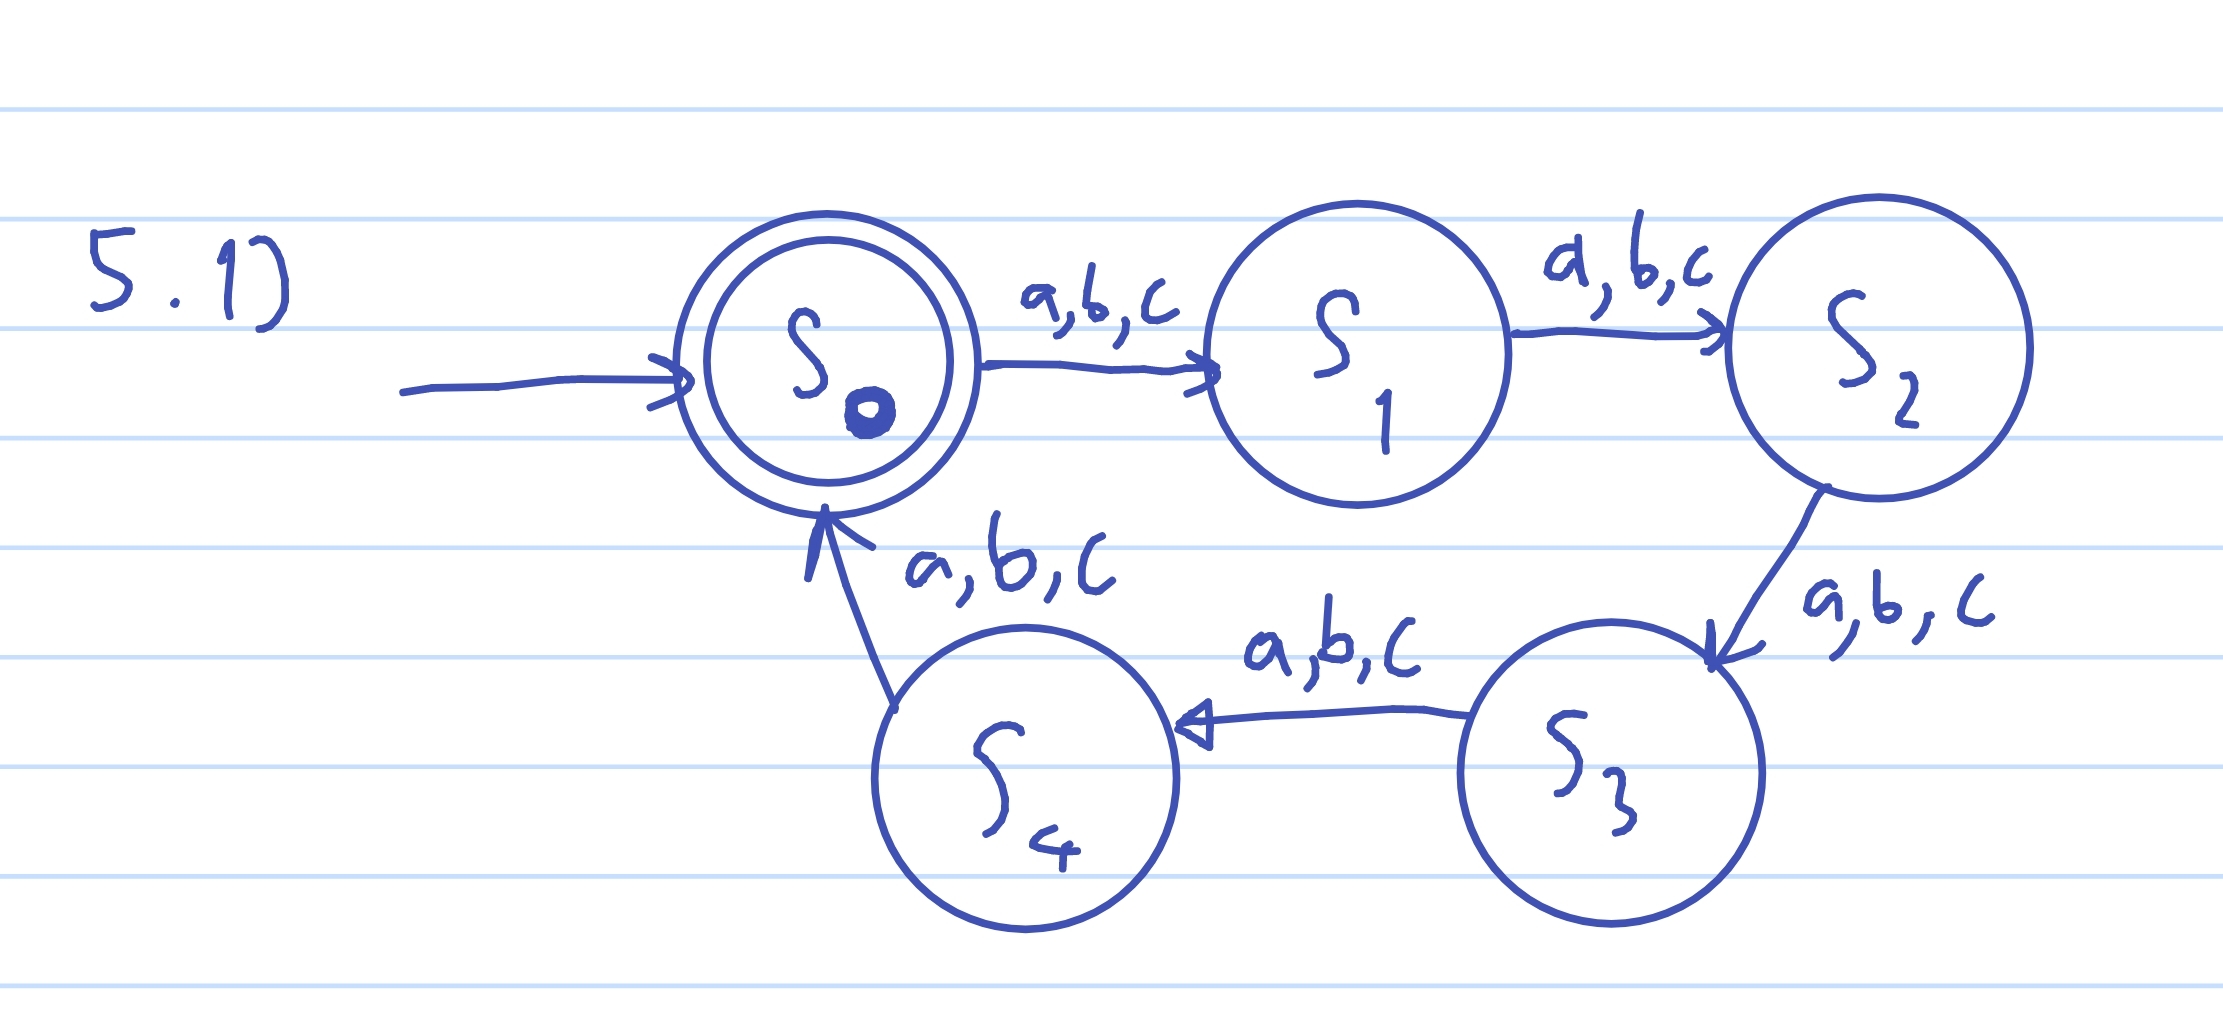 5.1)
S0
a,b,c
S1
a,b,c
S2
a,b,c
S3
a,b,c
S4
a,b,c